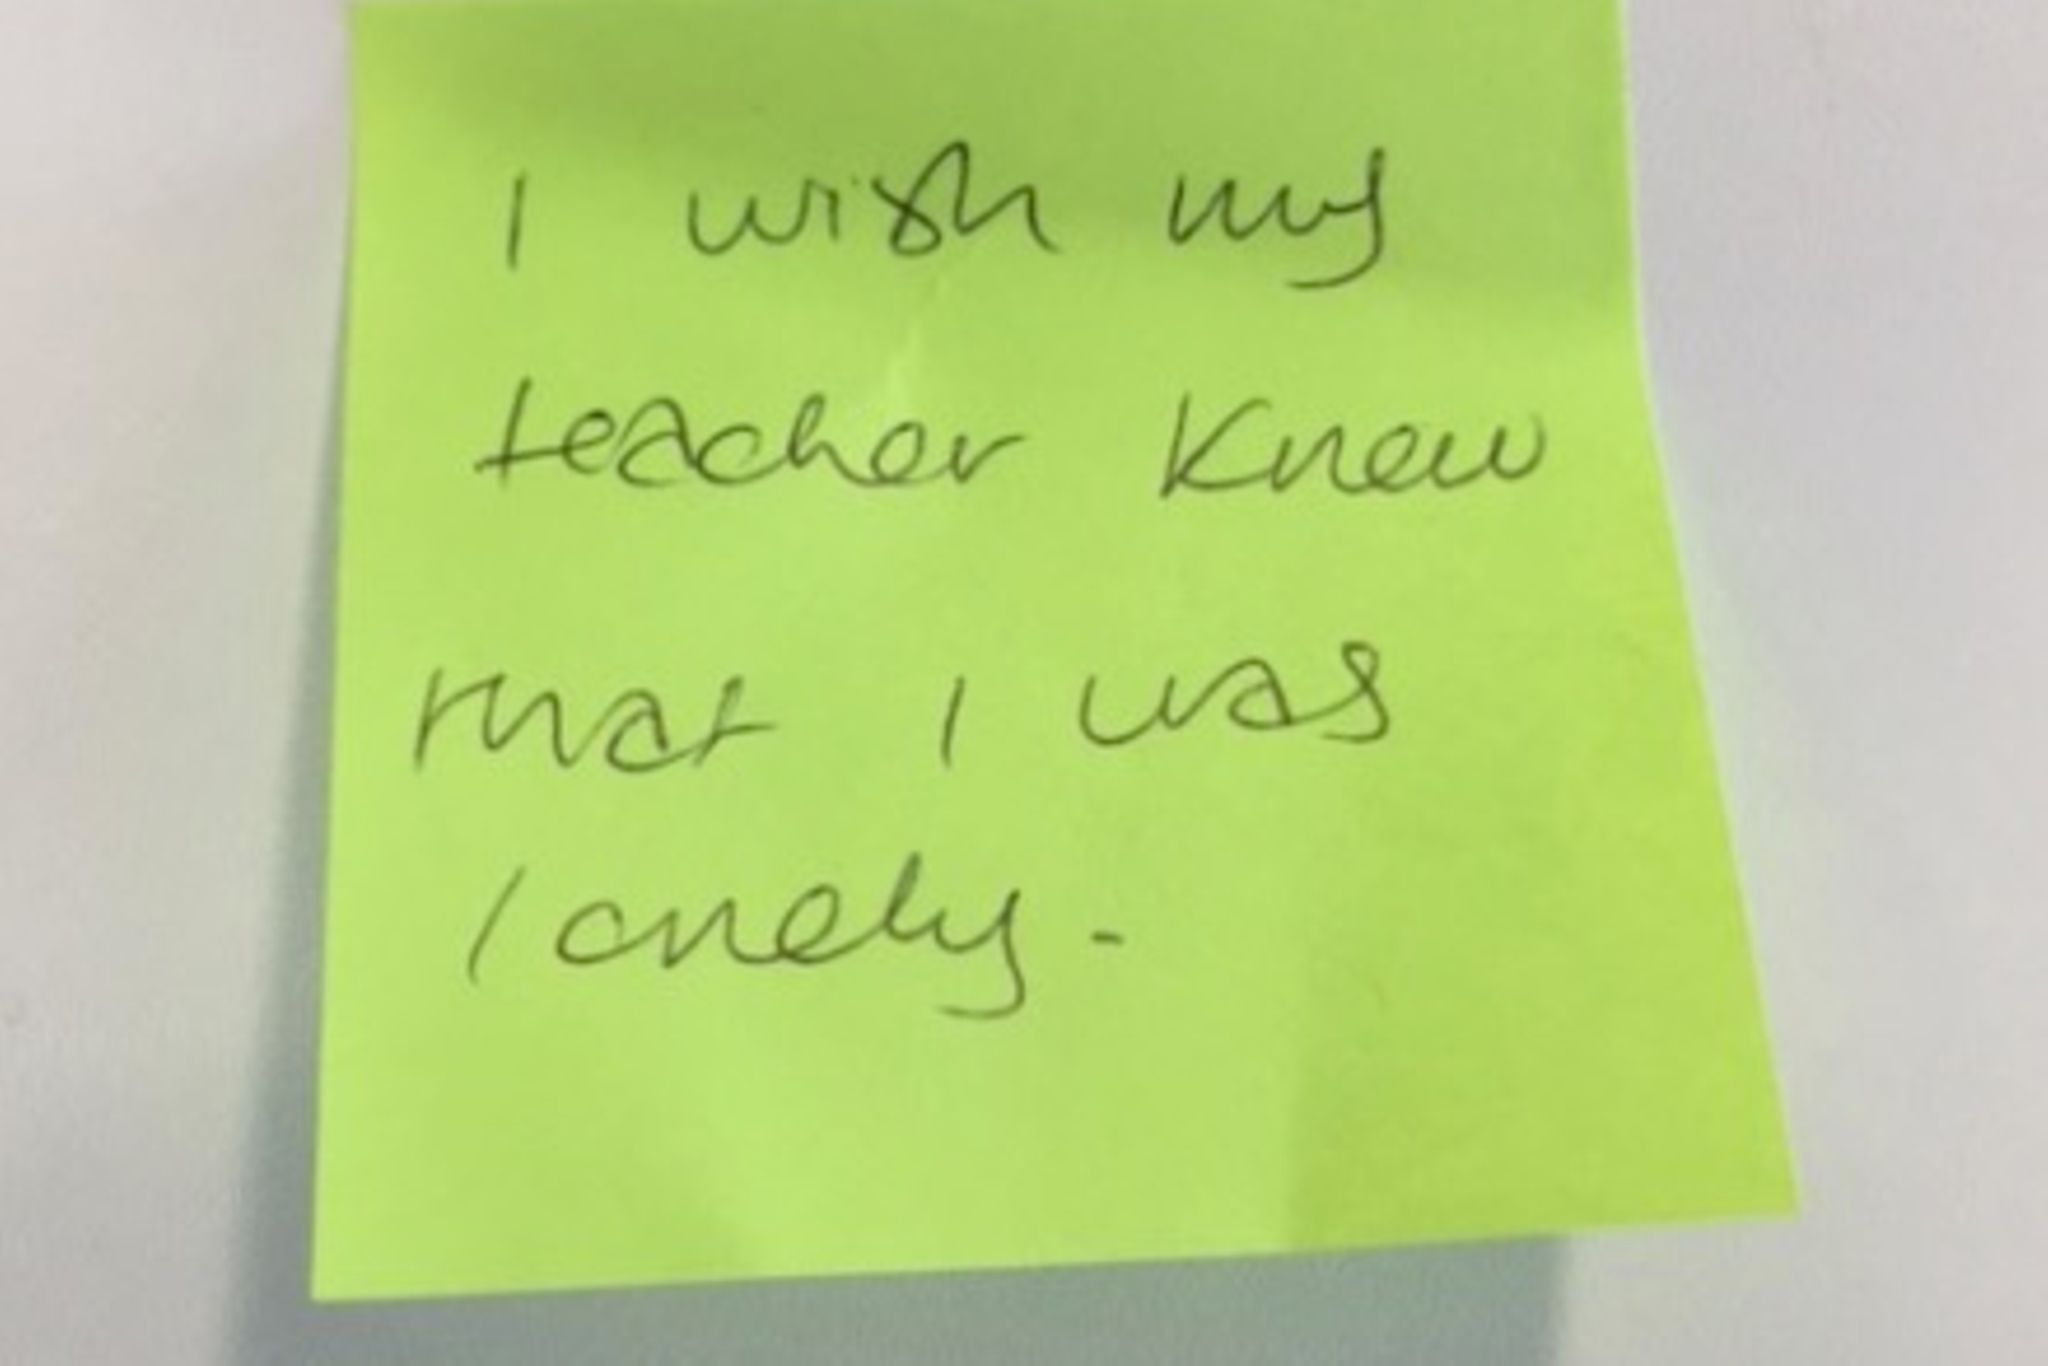 I wish my
teacher knew
that I was
lonely.